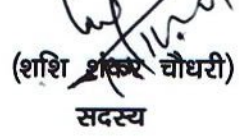 (शशि शंकर चौधरी)
सदस्य